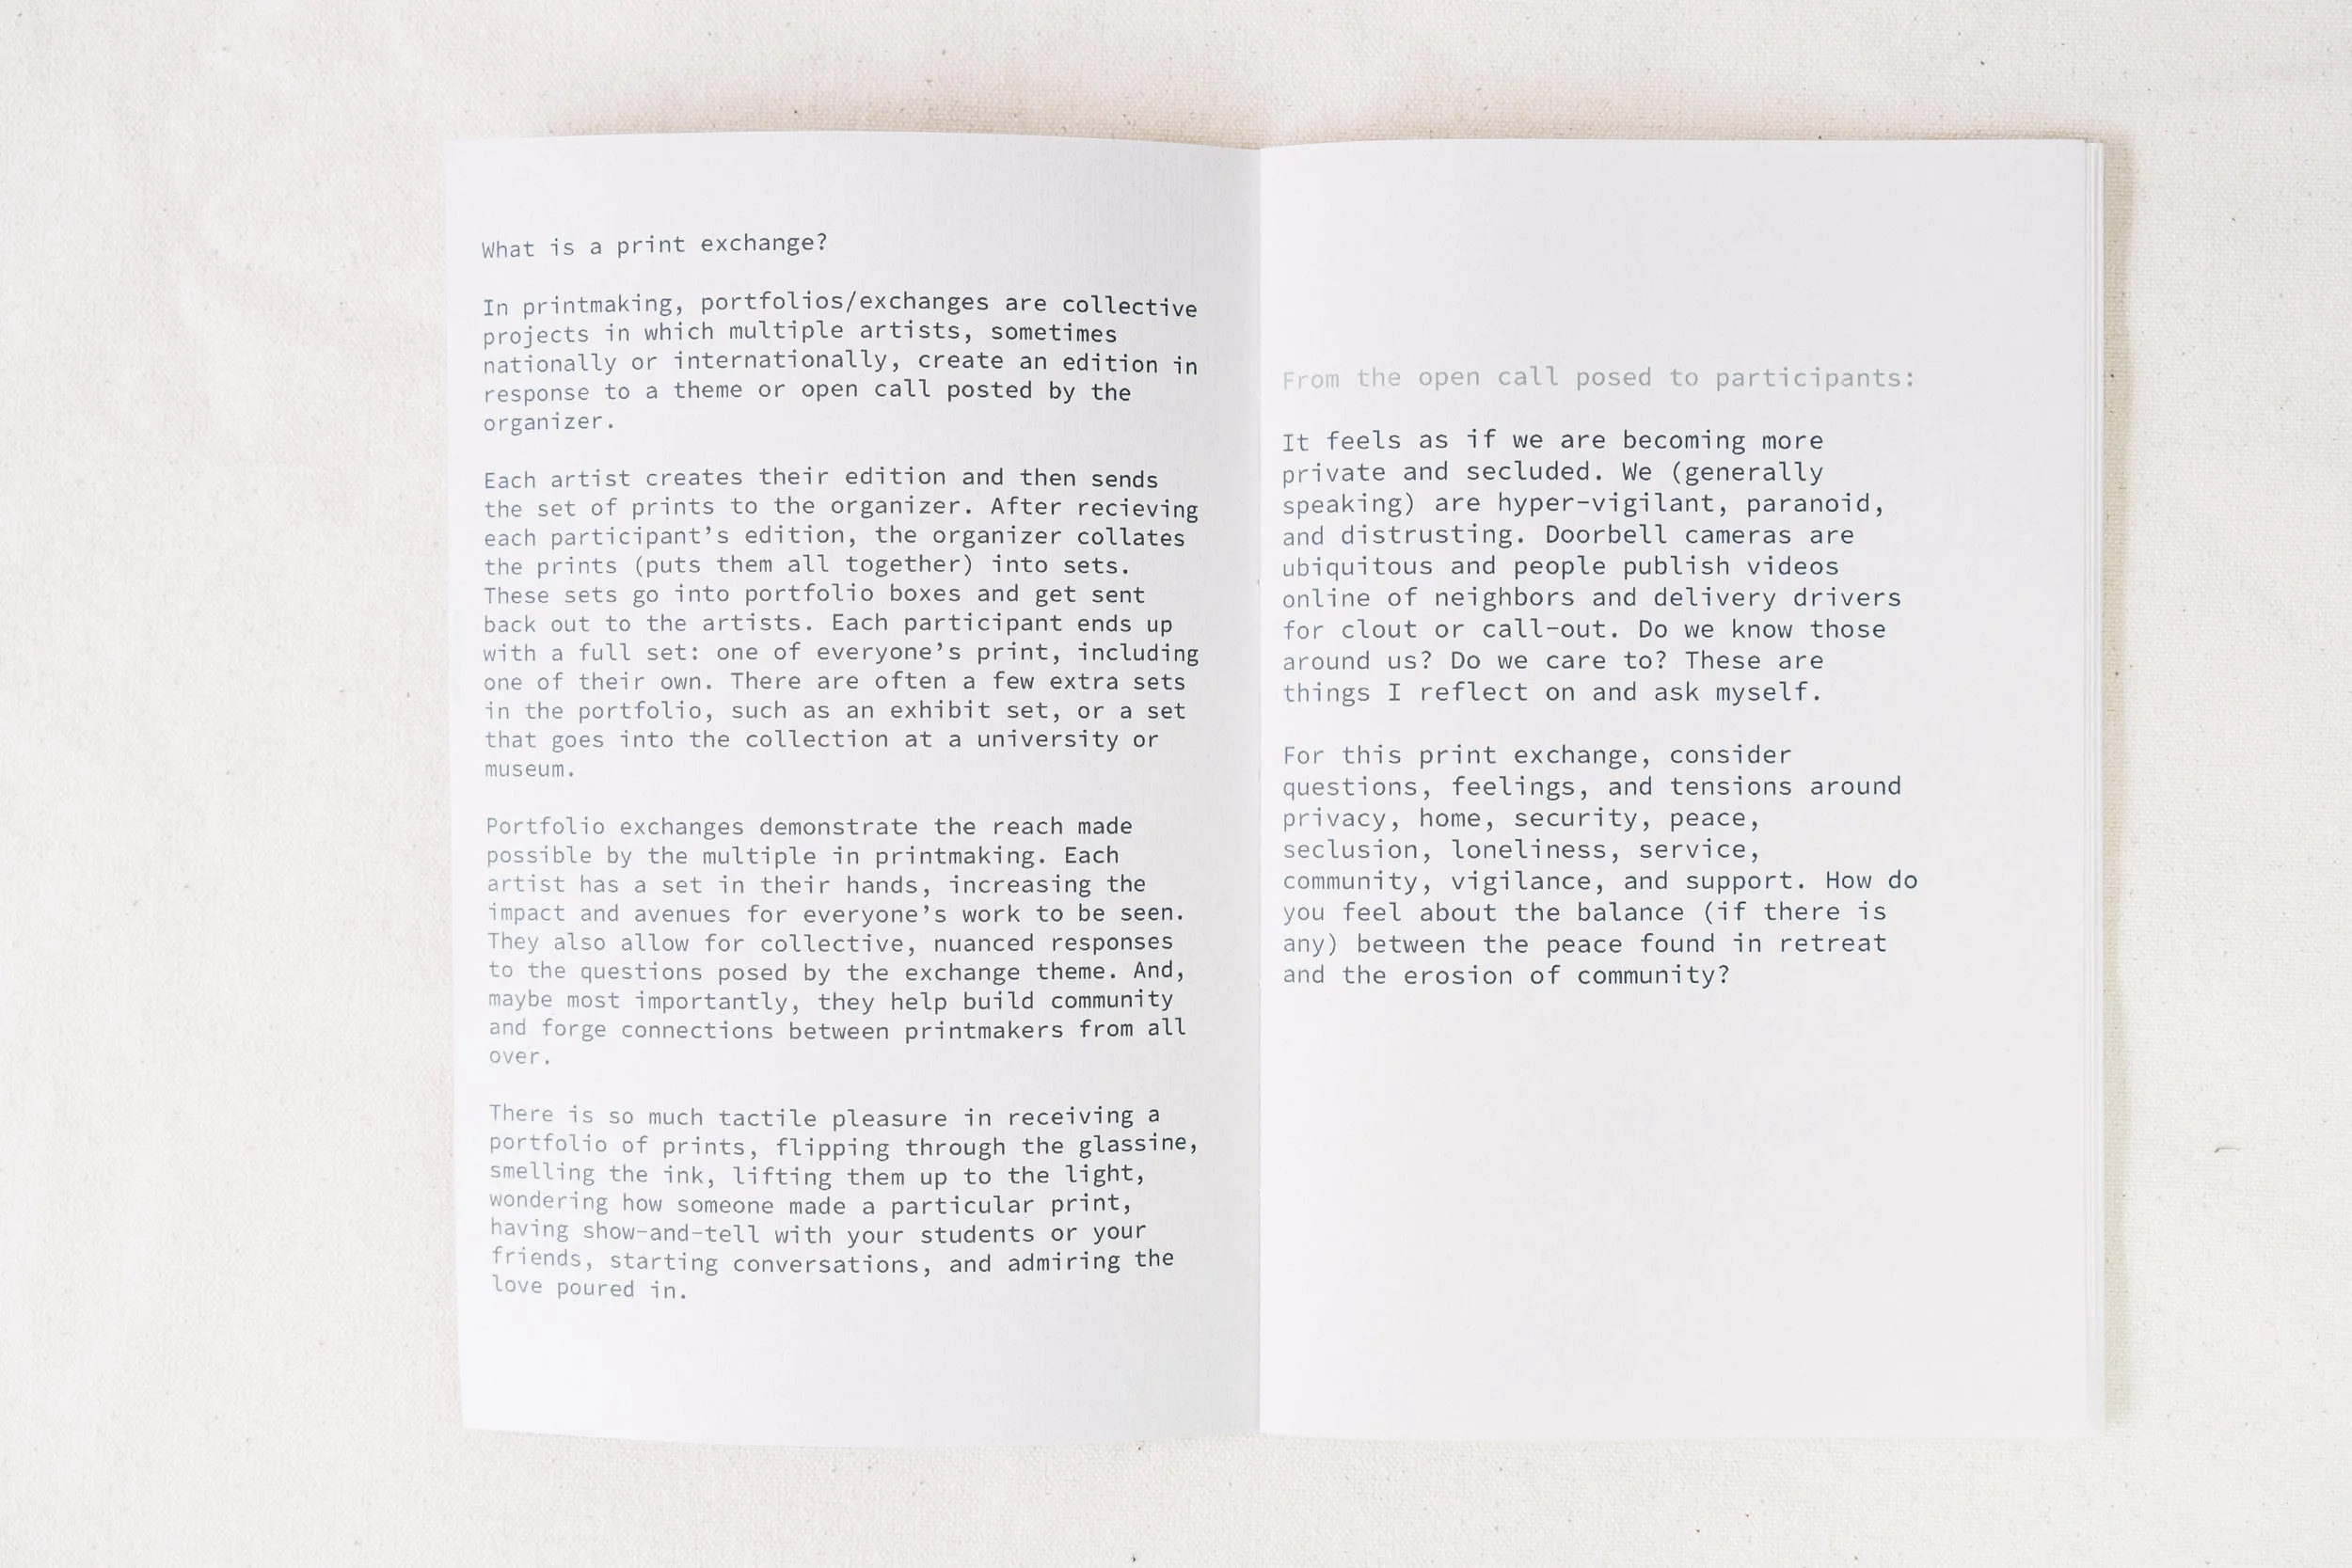 What is a print exchange?
In printmaking, portfolios/exchanges are collective
projects in which multiple artists, sometimes
nationally or internationally, create an edition in
response to a theme or open call posted by the
organizer.
Each artist creates their edition and then sends
the set of prints to the organizer. After recieving
each participant’s edition, the organizer collates
the prints (puts them all together) into sets.
These sets go into portfolio boxes and get sent
back out to the artists. Each participant ends up
with a full set: one of everyone’s print, including
one of their own. There are often a few extra sets
in the portfolio, such as an exhibit set, or a set
that goes into the collection at a university or
museum.
Portfolio exchanges demonstrate the reach made
possible by the multiple in printmaking. Each
artist has a set in their hands, increasing the
impact and avenues for everyone’s work to be seen.
They also allow for collective, nuanced responses
to the questions posed by the exchange theme. And,
maybe most importantly, they help build community
and forge connections between printmakers from all
over.
There is so much tactile pleasure in receiving a
portfolio of prints, flipping through the glassine,
smelling the ink, lifting them up to the light,
wondering how someone made a particular print,
having show-and-tell with your students or your
friends, starting conversations, and admiring the
love poured in.
From the open call posed to participants:
It feels as if we are becoming more
private and secluded. We (generally
speaking) are hyper-vigilant, paranoid,
and distrusting. Doorbell cameras are
ubiquitous and people publish videos
online of neighbors and delivery drivers
for clout or call-out. Do we know those
around us? Do we care to? These are
things I reflect on and ask myself.
For this print exchange, consider
questions, feelings, and tensions around
privacy, home, security, peace,
seclusion, loneliness, service,
community, vigilance, and support. How do
you feel about the balance (if there is
any) between the peace found in retreat
and the erosion of community?